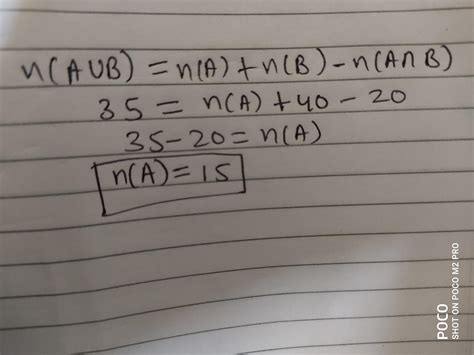 n(A∪B) = n(A) + n(B) - n(A∩B)
35 = n(A) + 40 - 20
35-20 = n(A)
n(A) = 15
POCO
SHOT ON POCO M2 PRO